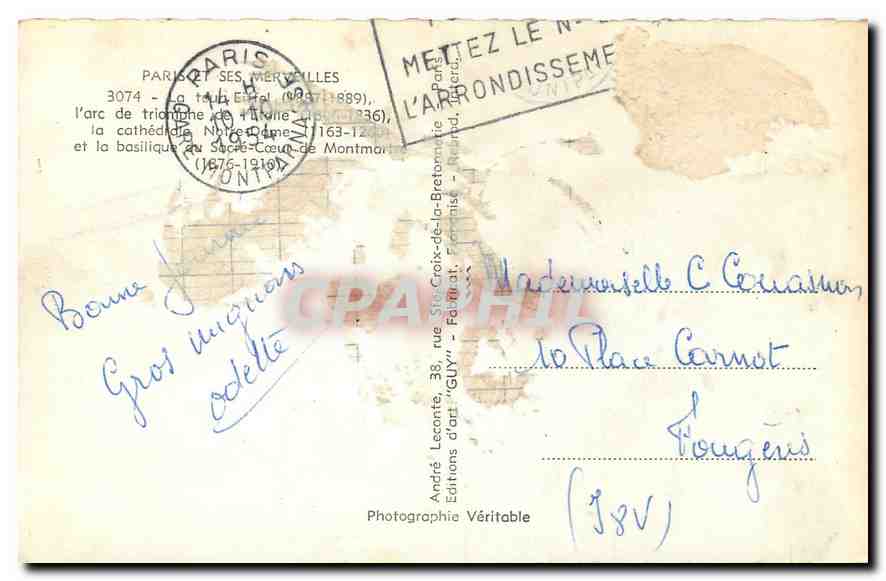 PARIS ET SES MERVEILLES
3074 - La tour Eiffel (1887-1889),
l'arc de triomphe de l'Etoile (1806-1836),
la cathédrale Notre-Dame (1163-1260)
et la basilique du Sacré-Cœur de Montmartre
(1876-1910)
PARIS
GARE MONTPARNASSE
METTEZ LE No
L'ARRONDISSEME
Bonne
Gros mignons
odette
André Leconte, 38, rue Ste-Croix-de-la-Bretonnerie - Paris
Editions d'art "GUY" - Fabricat. Française - Reprod. Interd.
Mademoiselle C Couasnon
10 Place Carnot
Fougères
(I&V)
Photographie Véritable
CPAPHIL